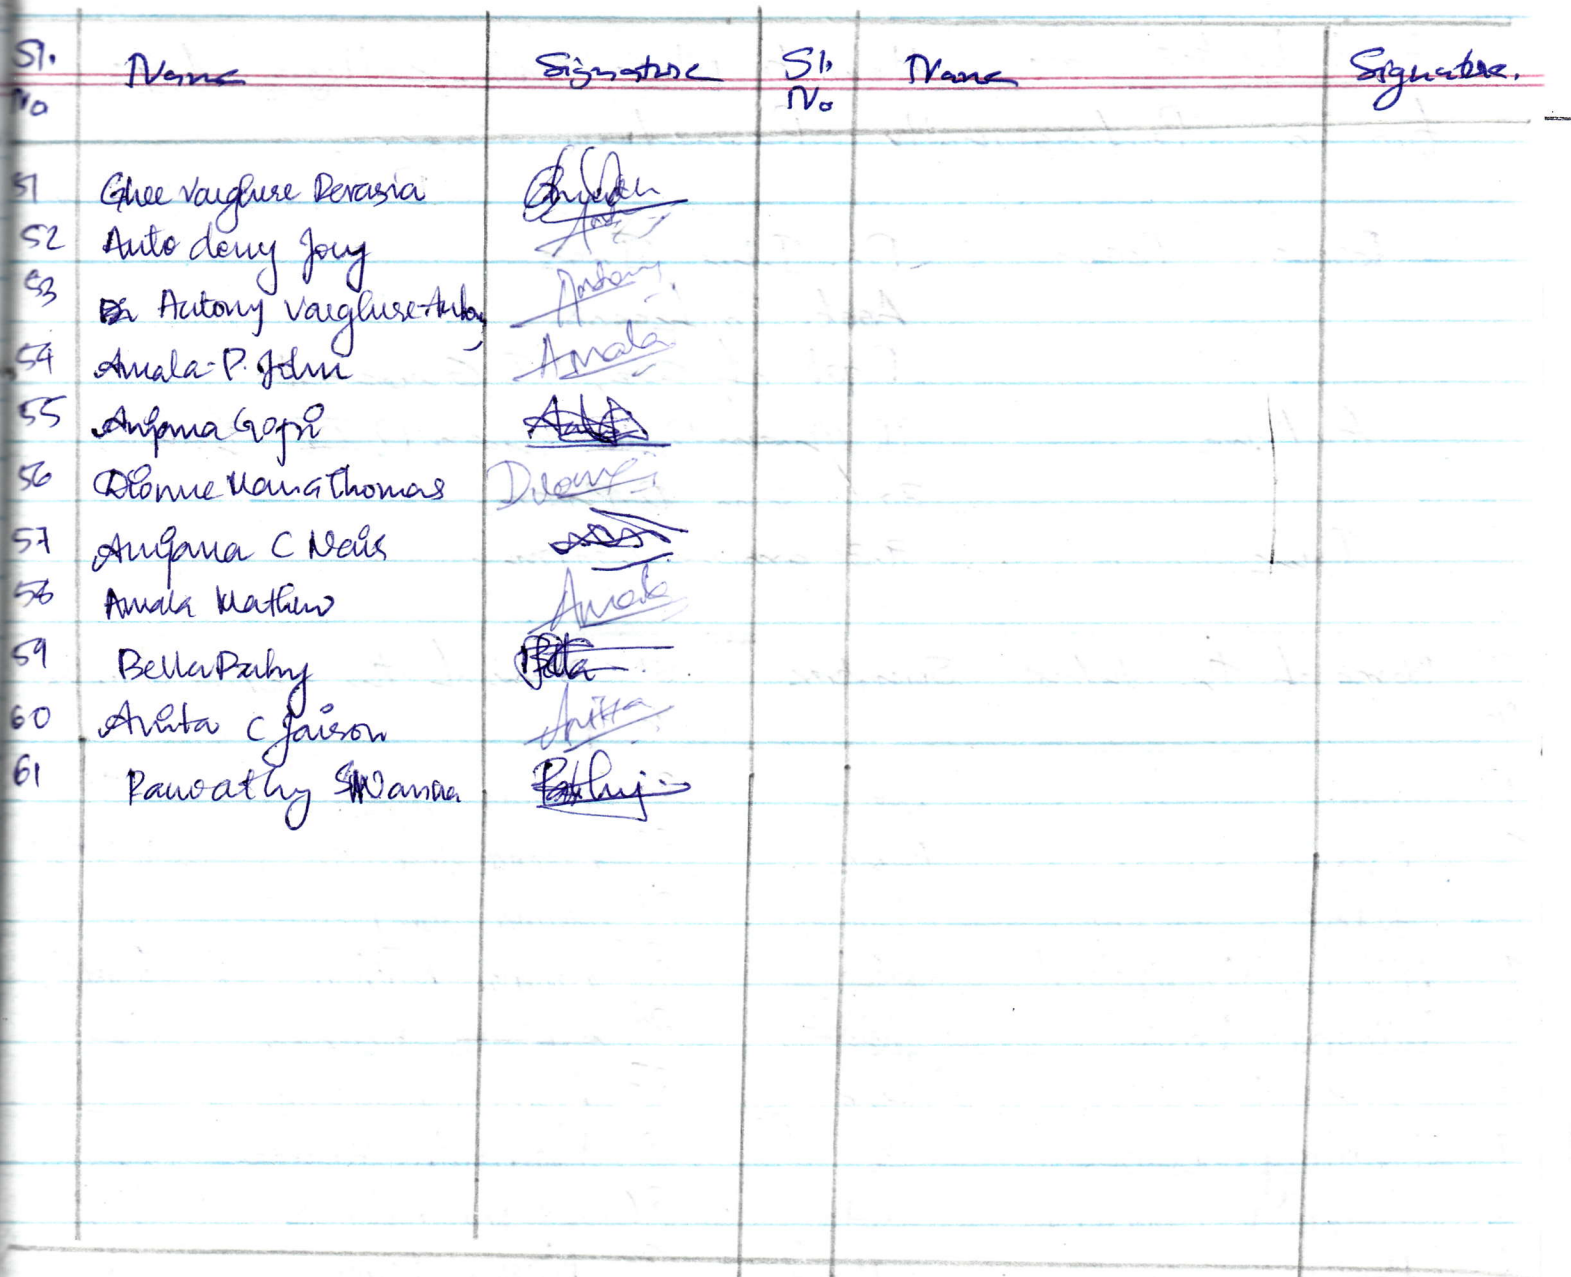 Sl. No Name Signature Sl. No Name Signature.
51 Ghee Varghese Devasia
52 Anto deny Jony
53 Antony Varghese Antony Antony
54 Amala P. John Amala
55 Anjana Gopi
56 Dionne Maria Thomas
57 Anjana C Nair
58 Amala Mathew Amala
59 Bella Baby Bella
60 Anita C Jaison Anitta
61 Parvathy